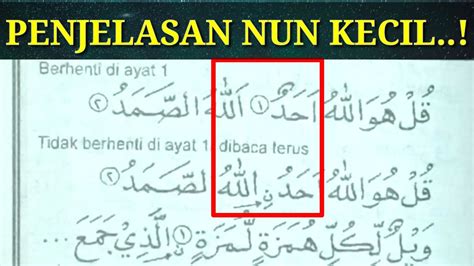 PENJELASAN NUN KECIL..!
Berhenti di ayat 1
قُلْ هُوَ اللّٰهُ اَحَدٌۚ ١ اَللّٰهُ الصَّمَدُۚ ٢
Tidak berhenti di ayat 1, dibaca terus
قُلْ هُوَ اللّٰهُ اَحَدُ نِ اللّٰهُ الصَّمَدُۚ ٢
وَيْلٌ لِّكُلِّ هُمَزَةٍ لُّمَزَةٍۙ ١ نِ الَّذِيْ جَمَعَ ...